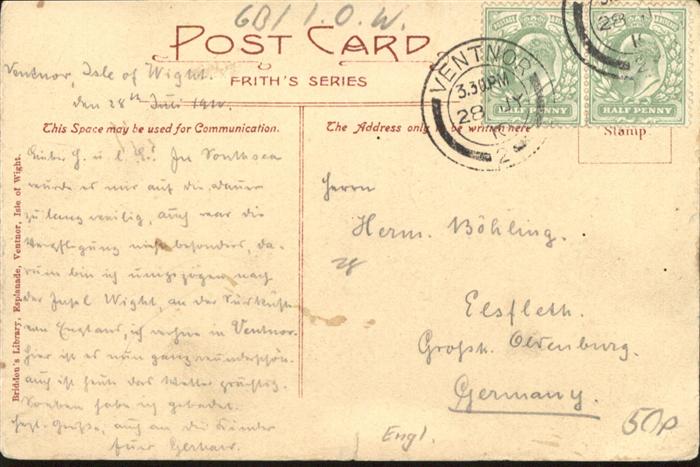 GB/ I.O.W.
POST CARD
FRITH'S SERIES
VENTNOR
3.30PM
28
2
HALF PENNY
HALF PENNY
28
2
Stamp
Ventnor, Isle of Wight.
den 28th Juli
This Space may be used for Communication.
The Address only to be written here
In Southsea
wurde es mir auf die dauer
zu langweilig, auch war die
Verpflegung nicht besonders, da-
rum bin ich umgezogen nach
der Insel Wight, an der Südküste
von England, ich wohne in Ventnor.
hier ist es nun ganz wunderschön.
auch ist heute das Wetter prächtig.
Soeben habe ich gebadet.
Herzl. Grüße, auch an die Kinder
Euer Gerhard.
Herrn
Herm. Böhling.
Elsfleth.
Großh. Oldenburg.
Germany.
Engl.
50p
Briddon's Library, Esplanade, Ventnor, Isle of Wight.